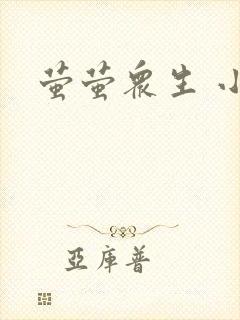 萤萤众生 小
亞库普